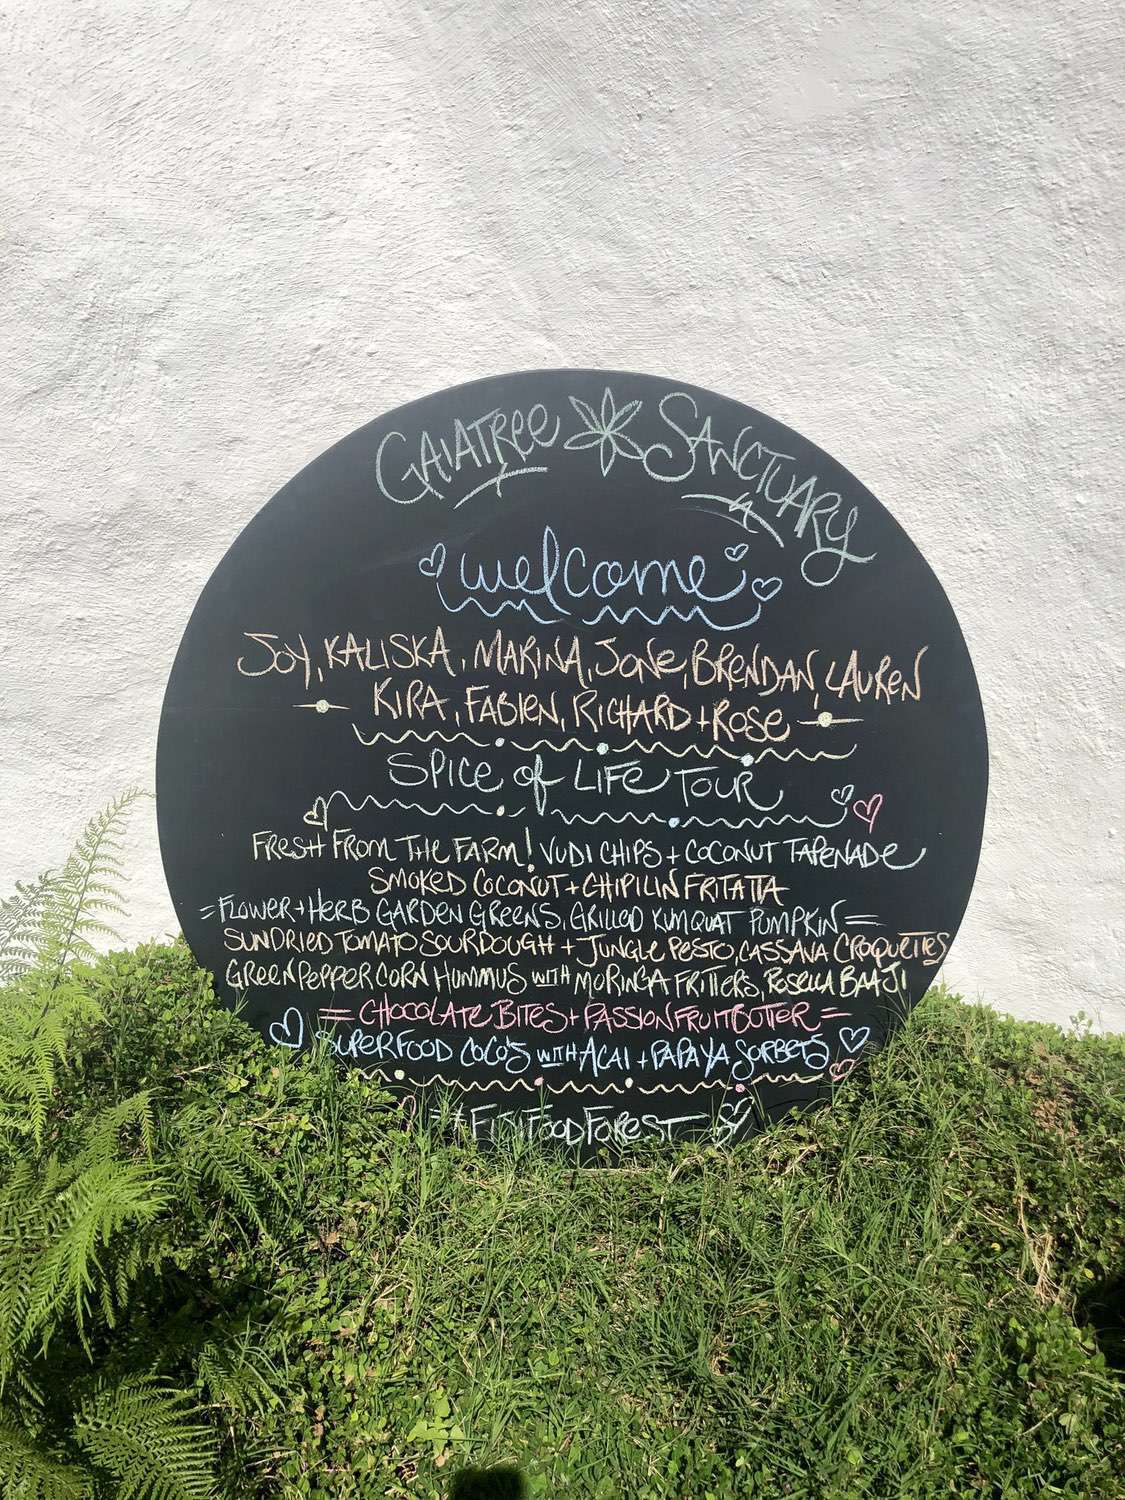 GAIATREE SANCTUARY
welcome
JOY, KALISKA, MARINA, JONE, BRENDAN, LAUREN
KIRA, FABIEN, RICHARD + ROSE
SPICE of LIFE TOUR
FRESH FROM THE FARM! VUDI CHIPS + COCONUT TAPENADE
SMOKED COCONUT + CHIPILIN FRITATTA
= FLOWER + HERB GARDEN GREENS, GRILLED KUMQUAT PUMPKIN =
SUNDRIED TOMATO SOURDOUGH + JUNGLE PESTO, CASSAVA CROQUETTES
GREEN PEPPERCORN HUMMUS WITH MORINGA FRITTERS, ROSELLA BAAJI
= CHOCOLATE BITES + PASSIONFRUIT BUTTER =
SUPERFOOD COCO'S WITH ACAI + PAPAYA SORBETS
#FIJIFOODFOREST